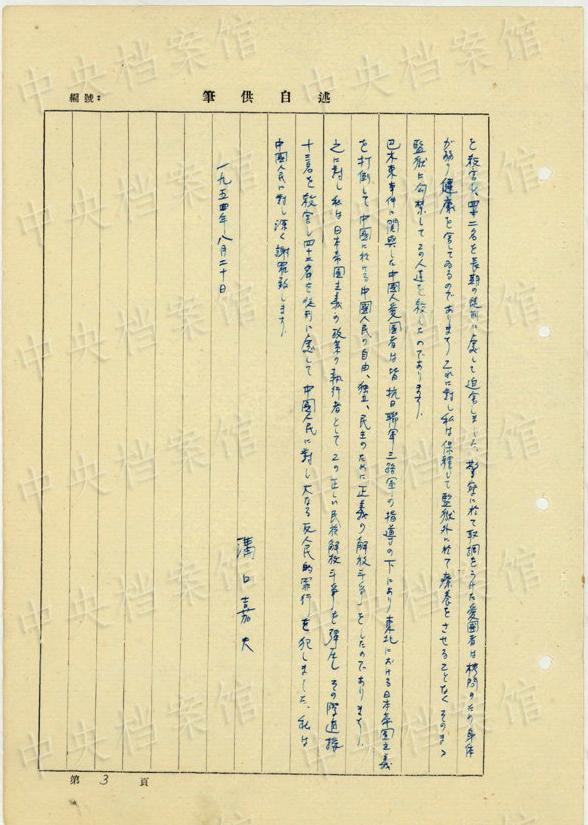 述自供筆
編號：
を殺害し、四十二名を長期の徒刑に處して迫害しました。警察に於て取調をうけた愛國者は拷問のため身体
が弱り健康を害してゐるのであります。これに対し私は保釋して監獄外に於て療養をさせることなくそのまゝ
監獄に勾禁してこの人達を殺したのであります。
巴木東事件に関與した中國人愛國者は皆抗日聯軍三路軍の指導の下にあり東北における日本帝國主義
を打倒して中國に於ける中國人民の自由、独立、民主のために正義の解放斗争をしたのであります。
之に対し私は日本帝國主義の政策の執行者としてこの正しい民族解放斗争を彈圧しその際直接
十三名を殺害し四十二名を徒刑に處して中國人民に対し大なる反人民的罪行を犯しました、私は
中國人民に対し深く謝罪致します。
一九五四年八月二十日
溝口嘉夫
第3頁
中央档案馆